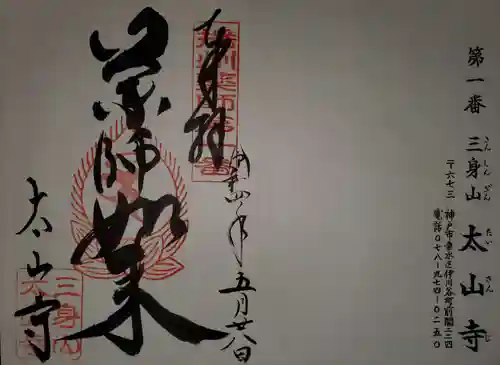 第一番 三身山 太山寺
さん しん ざん たい さん じ
〒六七三 神戸市垂水区伊川谷町前開二二四
電話〇七八-九七四-〇二五〇
奉拝
五月廿八日
薬師如来
太山寺
三身山